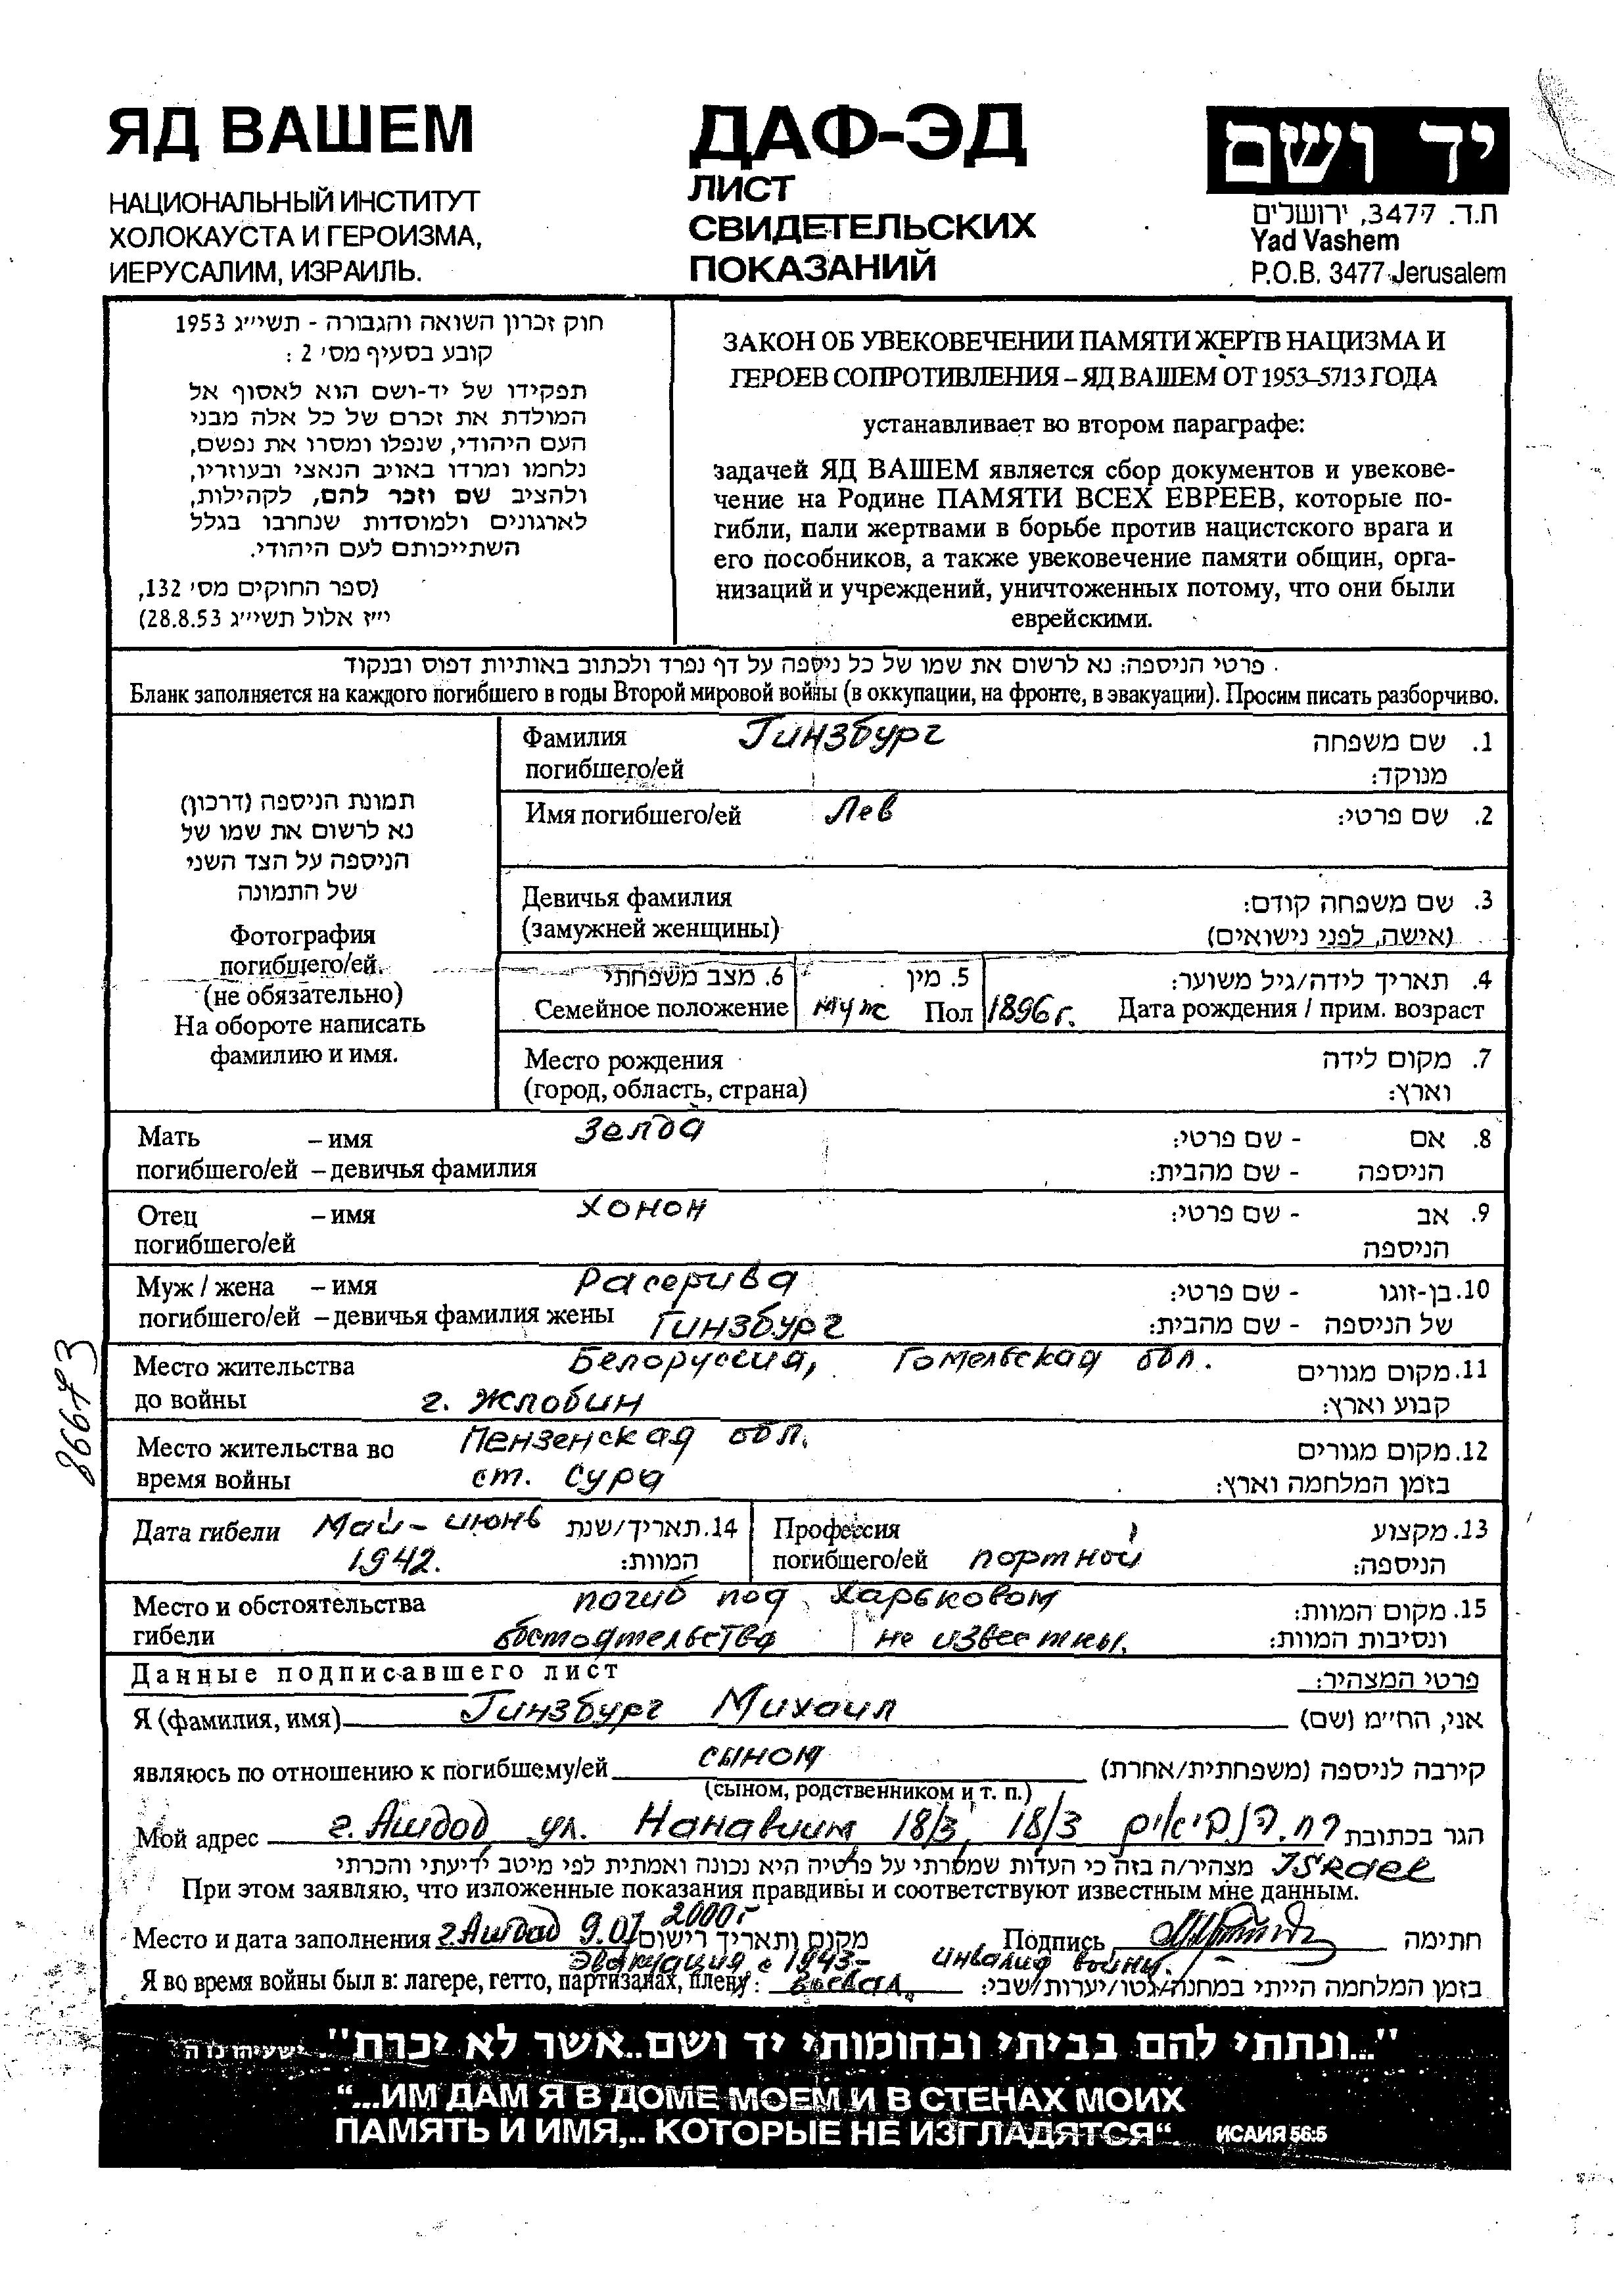 ЯД ВАШЕМ
НАЦИОНАЛЬНЫЙ ИНСТИТУТ
ХОЛОКАУСТА И ГЕРОИЗМА,
ИЕРУСАЛИМ, ИЗРАИЛЬ.
ДАФ-ЭД
ЛИСТ
СВИДЕТЕЛЬСКИХ
ПОКАЗАНИЙ
יד ושם
ת.ד. 3477, ירושלים
Yad Vashem
P.O.B. 3477 Jerusalem
חוק זכרון השואה והגבורה - תשי״ג 1953
קובע בסעיף מס׳ 2 :
תפקידו של יד-ושם הוא לאסוף אל
המולדת את זכרם של כל אלה מבני
העם היהודי, שנפלו ומסרו את נפשם,
נלחמו ומרדו באויב הנאצי ובעוזריו,
ולהציב שם וזכר להם, לקהילות,
לארגונים ולמוסדות שנחרבו בגלל
השתייכותם לעם היהודי.
(ספר החוקים מס׳ 132,
י״ז אלול תשי״ג 28.8.53)
ЗАКОН ОБ УВЕКОВЕЧЕНИИ ПАМЯТИ ЖЕРТВ НАЦИЗМА И
ГЕРОЕВ СОПРОТИВЛЕНИЯ – ЯД ВАШЕМ ОТ 1953–5713 ГОДА
устанавливает во втором параграфе:
задачей ЯД ВАШЕМ является сбор документов и увекове-
чение на Родине ПАМЯТИ ВСЕХ ЕВРЕЕВ, которые по-
гибли, пали жертвами в борьбе против нацистского врага и
его пособников, а также увековечение памяти общин, орга-
низаций и учреждений, уничтоженных потому, что они были
еврейскими.
פרטי הניספה: נא לרשום את שמו של כל ניספה על דף נפרד ולכתוב באותיות דפוס ובנקוד
Бланк заполняется на каждого погибшего в годы Второй мировой войны (в оккупации, на фронте, в эвакуации). Просим писать разборчиво.
תמונת הניספה (דרכון)
נא לרשום את שמו של
הניספה על הצד השני
של התמונה
Фотография
погибшего/ей.
(не обязательно)
На обороте написать
фамилию и имя.
Фамилия Гинзбург 1. שם משפחה
погибшего/ей מנוקד:
Имя погибшего/ей Лев 2. שם פרטי:
Девичья фамилия 3. שם משפחה קודם:
(замужней женщины) (אישה, לפני נישואים)
6. מצב משפחתי 5. מין 4. תאריך לידה/גיל משוער:
Семейное положение муж Пол 1896 г. Дата рождения / прим. возраст
Место рождения 7. מקום לידה
(город, область, страна) וארץ:
Мать – имя Зелда 8. אם - שם פרטי:
погибшего/ей – девичья фамилия הניספה - שם מהבית:
Отец – имя Хонон 9. אב - שם פרטי:
погибшего/ей הניספה
Муж / жена – имя Расерива 10. בן-זוגו - שם פרטי:
погибшего/ей – девичья фамилия жены Гинзбург של הניספה - שם מהבית:
Место жительства Белоруссия, Гомельская обл. 11. מקום מגורים
до войны г. Жлобин קבוע וארץ:
Место жительства во Пензенская обл. 12. מקום מגורים
время войны ст. Сура בזמן המלחמה וארץ:
Дата гибели Май – июнь 14. תאריך/שנת Профессия 13. מקצוע
1942. המוות: погибшего/ей портной הניספה:
Место и обстоятельства погиб под Харьковом 15. מקום המוות:
гибели обстоятельства не известны. ונסיבות המוות:
Данные подписавшего лист פרטי המצהיר:
Я (фамилия, имя) Гинзбург Михаил אני, הח״מ (שם)
являюсь по отношению к погибшему/ей сыном קירבה לניספה (משפחתית/אחרת)
(сыном, родственником и т. п.)
Мой адрес г. Ашдод ул. Нанавиим 18/3, 18/3 רח. הנביאים הגר בכתובת
מצהיר/ה בזה כי העדות שמסרתי על פרטיה היא נכונה ואמתית לפי מיטב ידיעתי והכרתי ISRael
При этом заявляю, что изложенные показания правдивы и соответствуют известным мне данным.
Место и дата заполнения г. Ашдод 9.07 2000 г מקום ותאריך רישום Подпись חתימה
Эвакуация с 1943 – инвалид войны.
Я во время войны был в: лагере, гетто, партизанах, плену: воевал. בזמן המלחמה הייתי במחנה/גטו/יערות/שבי:
86673
"...ונתתי להם בביתי ובחומותי יד ושם..אשר לא יכרת". ישעיהו נו ה
“...ИМ ДАМ Я В ДОМЕ МОЕМ И В СТЕНАХ МОИХ
ПАМЯТЬ И ИМЯ,.. КОТОРЫЕ НЕ ИЗГЛАДЯТСЯ“. ИСАИЯ 56:5